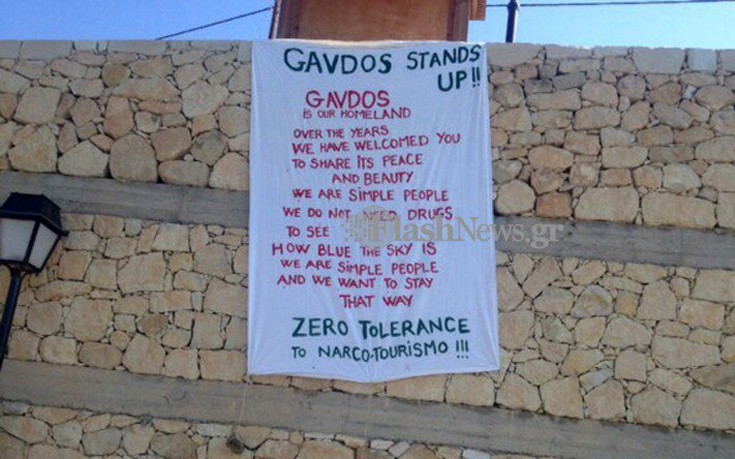 GAVDOS STANDS
UP!!
GAVDOS
IS OUR HOMELAND
OVER THE YEARS
WE HAVE WELCOMED YOU
TO SHARE ITS PEACE
AND BEAUTY
WE ARE SIMPLE PEOPLE
WE DO NOT NEED DRUGS
TO SEE
FlashNews.gr
HOW BLUE THE SKY IS
WE ARE SIMPLE PEOPLE
AND WE WANT TO STAY
THAT WAY
ZERO TOLERANCE
TO NARCO-TOURISMO !!!